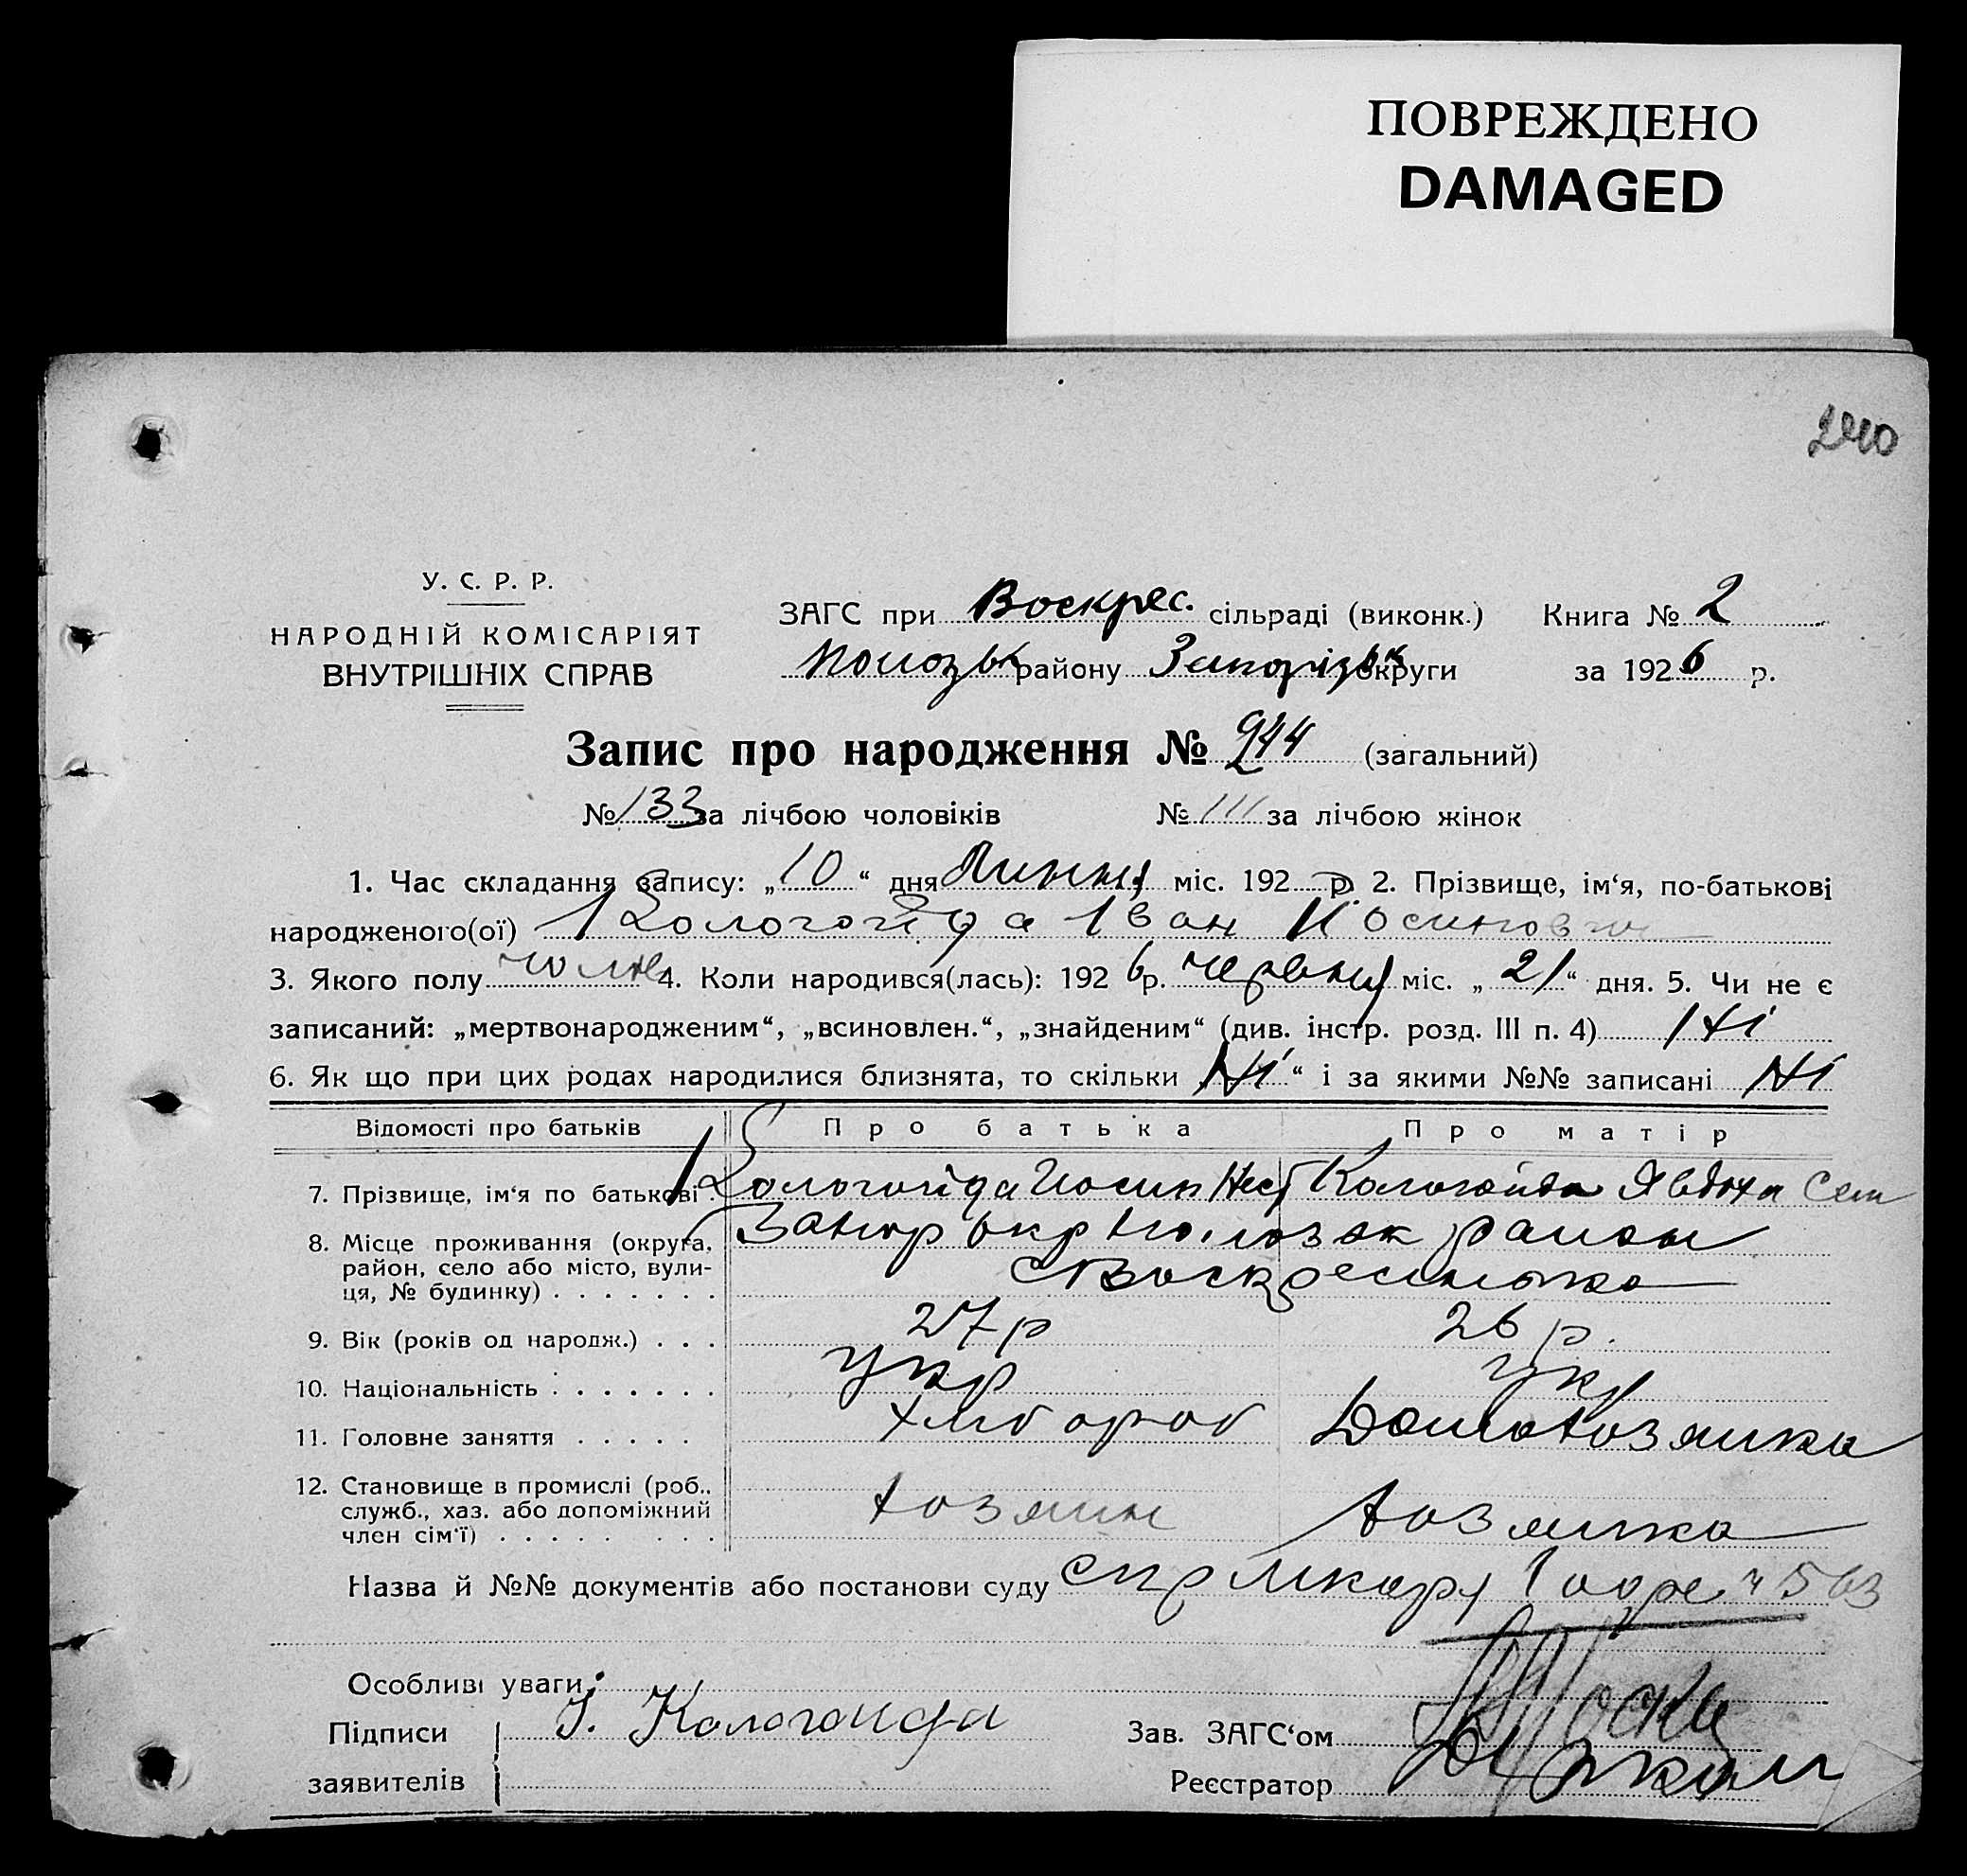 ПОВРЕЖДЕНО
DAMAGED
240
У. С. Р. Р.
НАРОДНІЙ КОМІСАРІЯТ
ВНУТРІШНІХ СПРАВ
ЗАГС при Воскрес. сільраді (виконк.) Книга № 2
Пологівськ району Запорізьк округи за 1926 р.
Запис про народження № 244 (загальний)
№ 133 за лічбою чоловіків № 111 за лічбою жінок
1. Час складання запису: „10“ дня Липня міс. 192 р. 2. Прізвище, ім‘я, по-батькові
народженого(ої) Кологойда Іван Йосипович
3. Якого полу чолов 4. Коли народився(лась): 1926 р. червня міс. „21“ дня. 5. Чи не є
записаний: „мертвонародженим“, „всиновлен.“, „знайденим“ (див. інстр. розд. III п. 4) Ні
6. Як що при цих родах народилися близнята, то скільки „Ні“ і за якими №№ записані Ні
Відомості про батьків Про батька Про матір
7. Прізвище, ім‘я по батькові . Кологойда Йосип Нест Кологойда Явдоха Сем
8. Місце проживання (округа, Запор окр Пологзьк району
район, село або місто, вули- с Воскресенька
ця, № будинку) . . . . . . .
9. Вік (років од народж.) . . . 27 р 26 р.
10. Національність . . . . . . . укр укр
11. Головне заняття . . . . . хлібороб Домохозяйка
12. Становище в промислі (роб.,
служб., хаз. або допоміжний хозяин хозяйка
член сім‘ї) . . . . . . . .
Назва й №№ документів або постанови суду 563
Особливі уваги:
Підписи І. Кологойда Зав. ЗАГС‘ом
заявителів Реєстратор